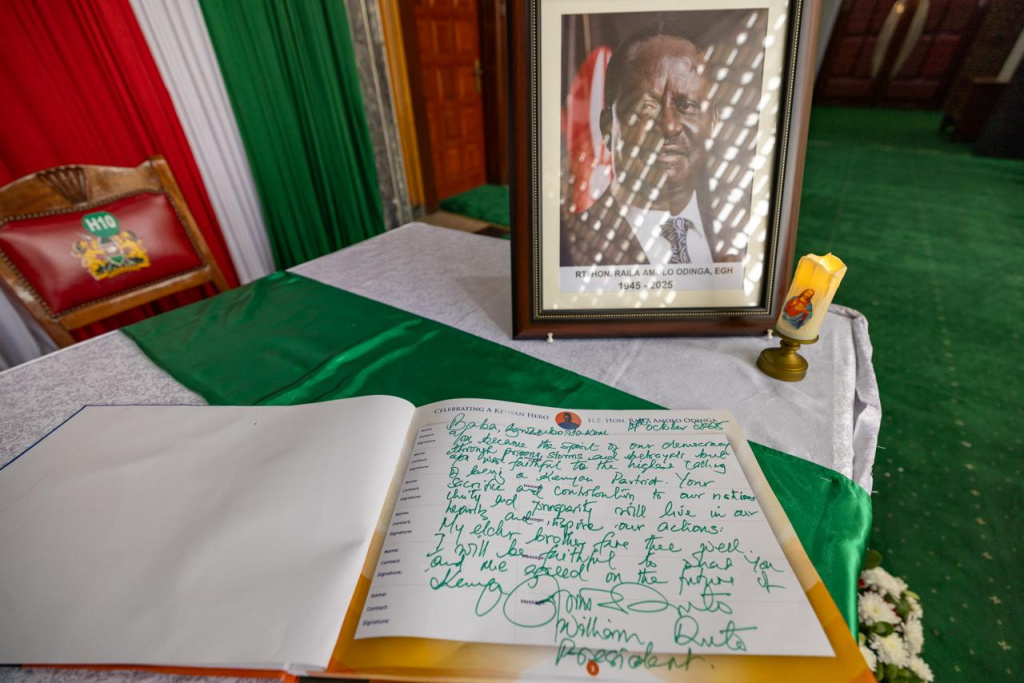 H10
RT. HON. RAILA AMOLO ODINGA, EGH
1945 - 2025
CELEBRATING A KENYAN HERO H.E. HON. RAILA AMOLO ODINGA
Baba, October
You became the spirit of our democracy
through prisons, storms and betrayals but
you were faithful to the highest calling
of being a Kenyan Patriot. Your
sacrifice and contribution to our nations
unity and prosperity will live in our
hearts and inspire our actions.
My elder brother fare thee well.
I will be faithful to what you
and me agreed on the future of
Kenya
William Ruto
President.
Name:
Contact:
Signature:
Name:
Contact:
Signature:
Name:
Contact:
Signature:
Name:
Contact:
Signature:
Name:
Contact:
Signature: